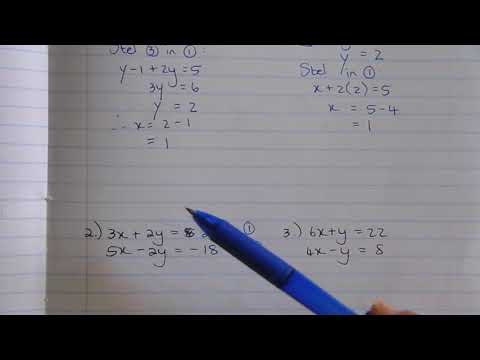 Stel ③ in ① :
y-1+2y=5
3y=6
y = 2
∴ x= 2-1
= 1
y = 2
Stel in ①
x+2(2)=5
x = 5-4
= 1
2.) 3x+2y = ①
5x-2y=-18
3.) 6x+y=22
4x-y=8